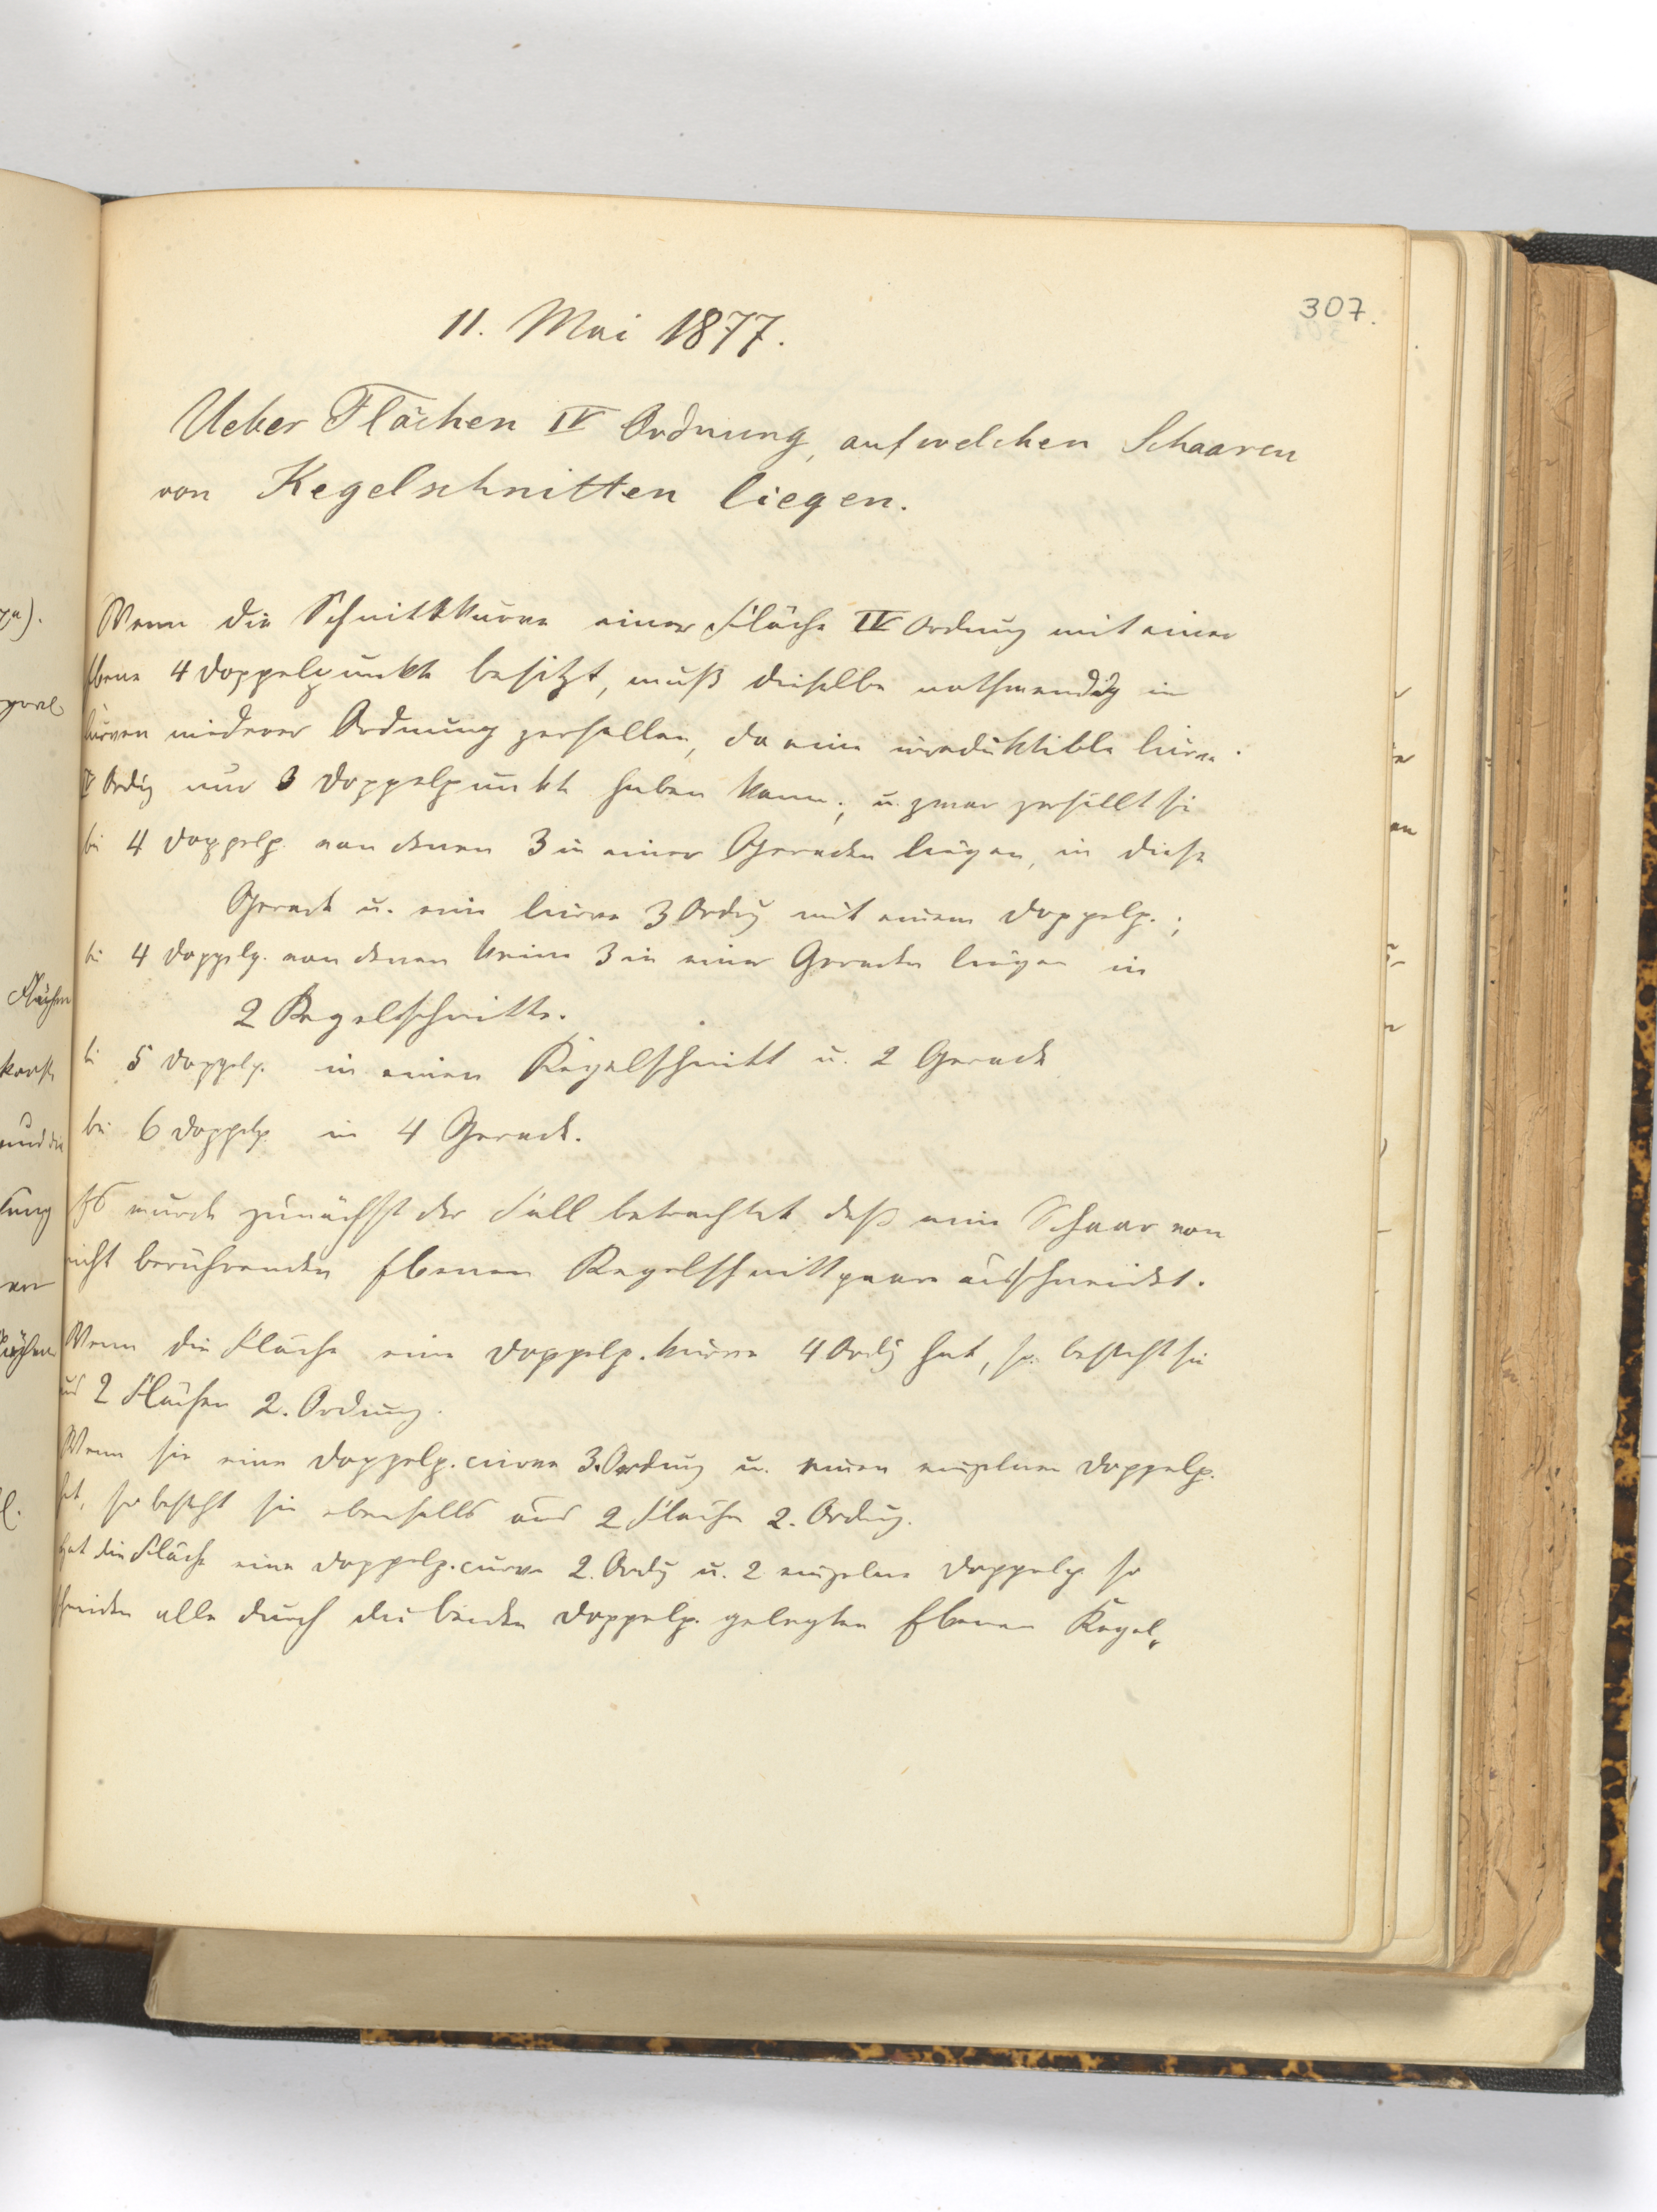 307.
11. Mai 1877.
Ueber Flächen IV Ordnung, auf welchen Schaaren
von Kegelschnitten liegen.
Wenn die Schnittkurve einer Fläche IV Ordnung mit einer
Ebene 4 Doppelpunkte besitzt, muß dieselbe nothwendig in
Curven niederer Ordnung zerfallen, da eine irreduktible Curve
IV Ordg nur 3 Doppelpunkte haben kann; u. zwar zerfällt sie
bei 4 Doppelp. von denen 3 in einer Geraden liegen, in diese
Gerade u. eine Curve 3 Ordg mit einem Doppelp.;
bei 4 Doppelp. von denen keine 3 in einer Geraden liegen in
2 Kegelschnitte.
bei 5 Doppelp. in einen Kegelschnitt u. 2 Gerade
bei 6 Doppelp. in 4 Gerade.
Es wurde zunächst der Fall betrachtet daß eine Schaar von
nicht berührenden Ebenen Kegelschnittpaare ausschneidet.
Wenn die Fläche eine Doppelp.kurve 4 Ordg hat, so besteht sie
aus 2 Flächen 2. Ordnung.
Wenn sie eine Doppelp.curve 3. Ordnung u. einen einzelnen Doppelp.
hat, so besteht sie ebenfalls aus 2 Flächen 2. Ordng.
Hat die Fläche eine Doppelp.curve 2. Ordg u. 2 einzelne Doppelp. so
schneiden alle durch die beiden Doppelp. gelegten Ebenen Kegel„